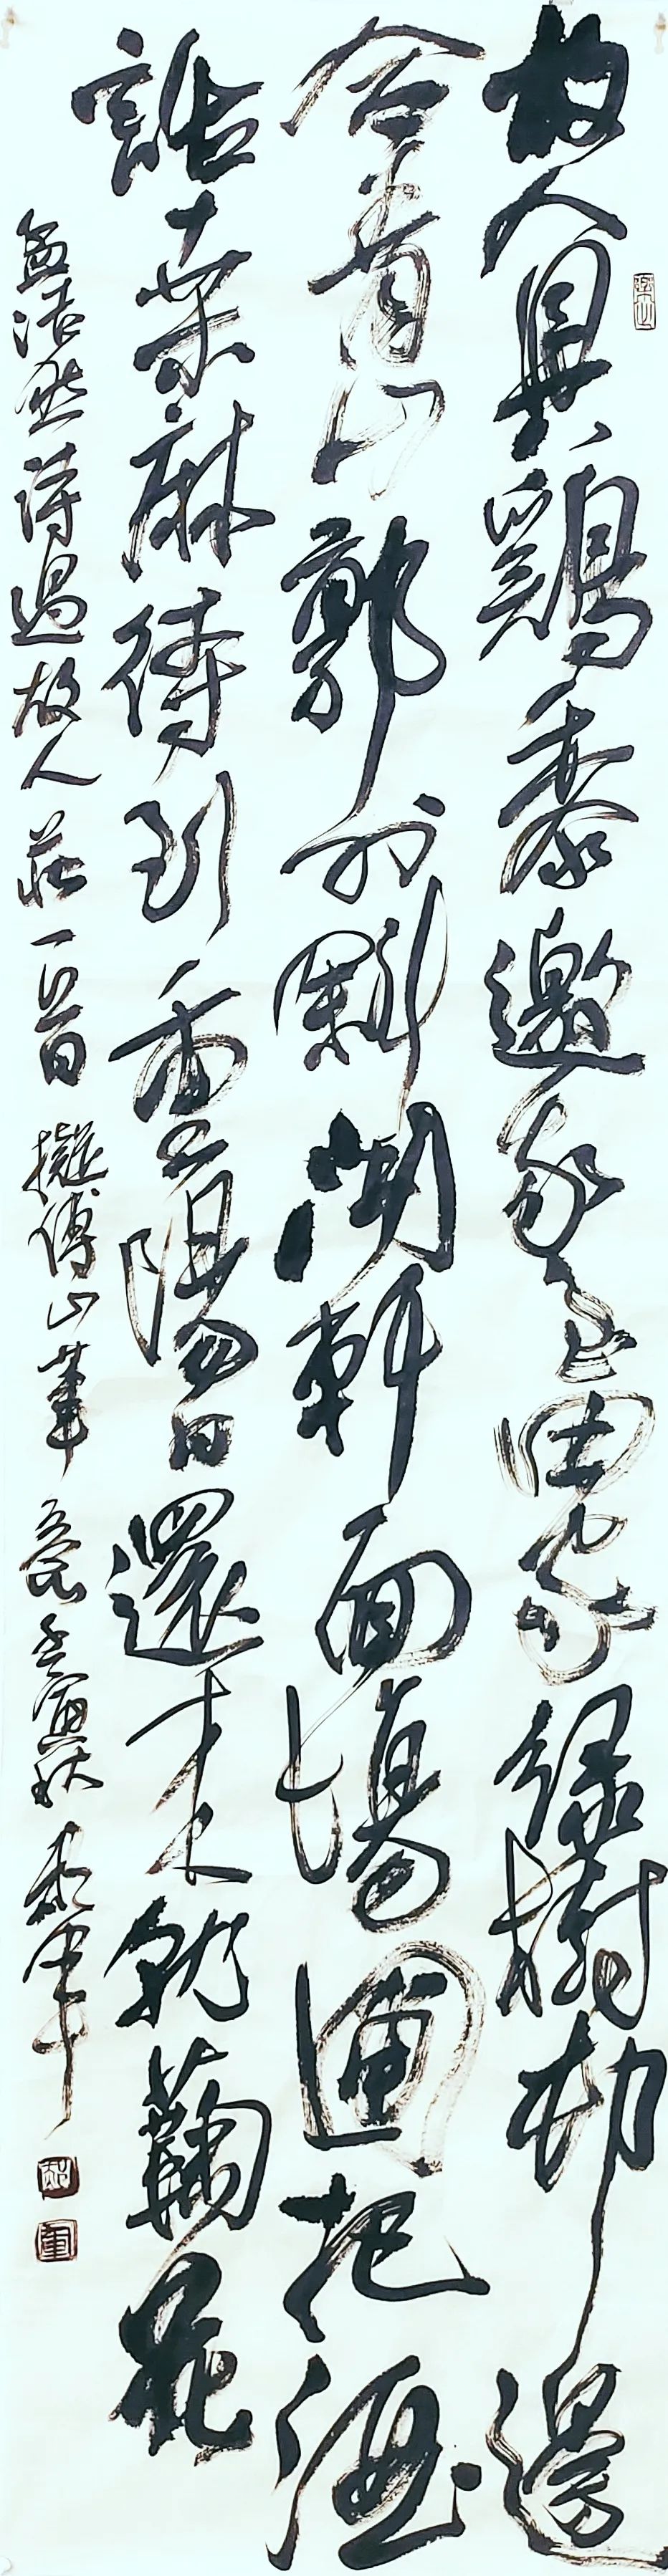 故人具鷄黍邀我至田家綠樹村邊
合青山郭外斜開軒面場圃把酒
話桑麻待到重陽日還來就菊花
孟浩然詩過故人莊一首擬傅山筆意